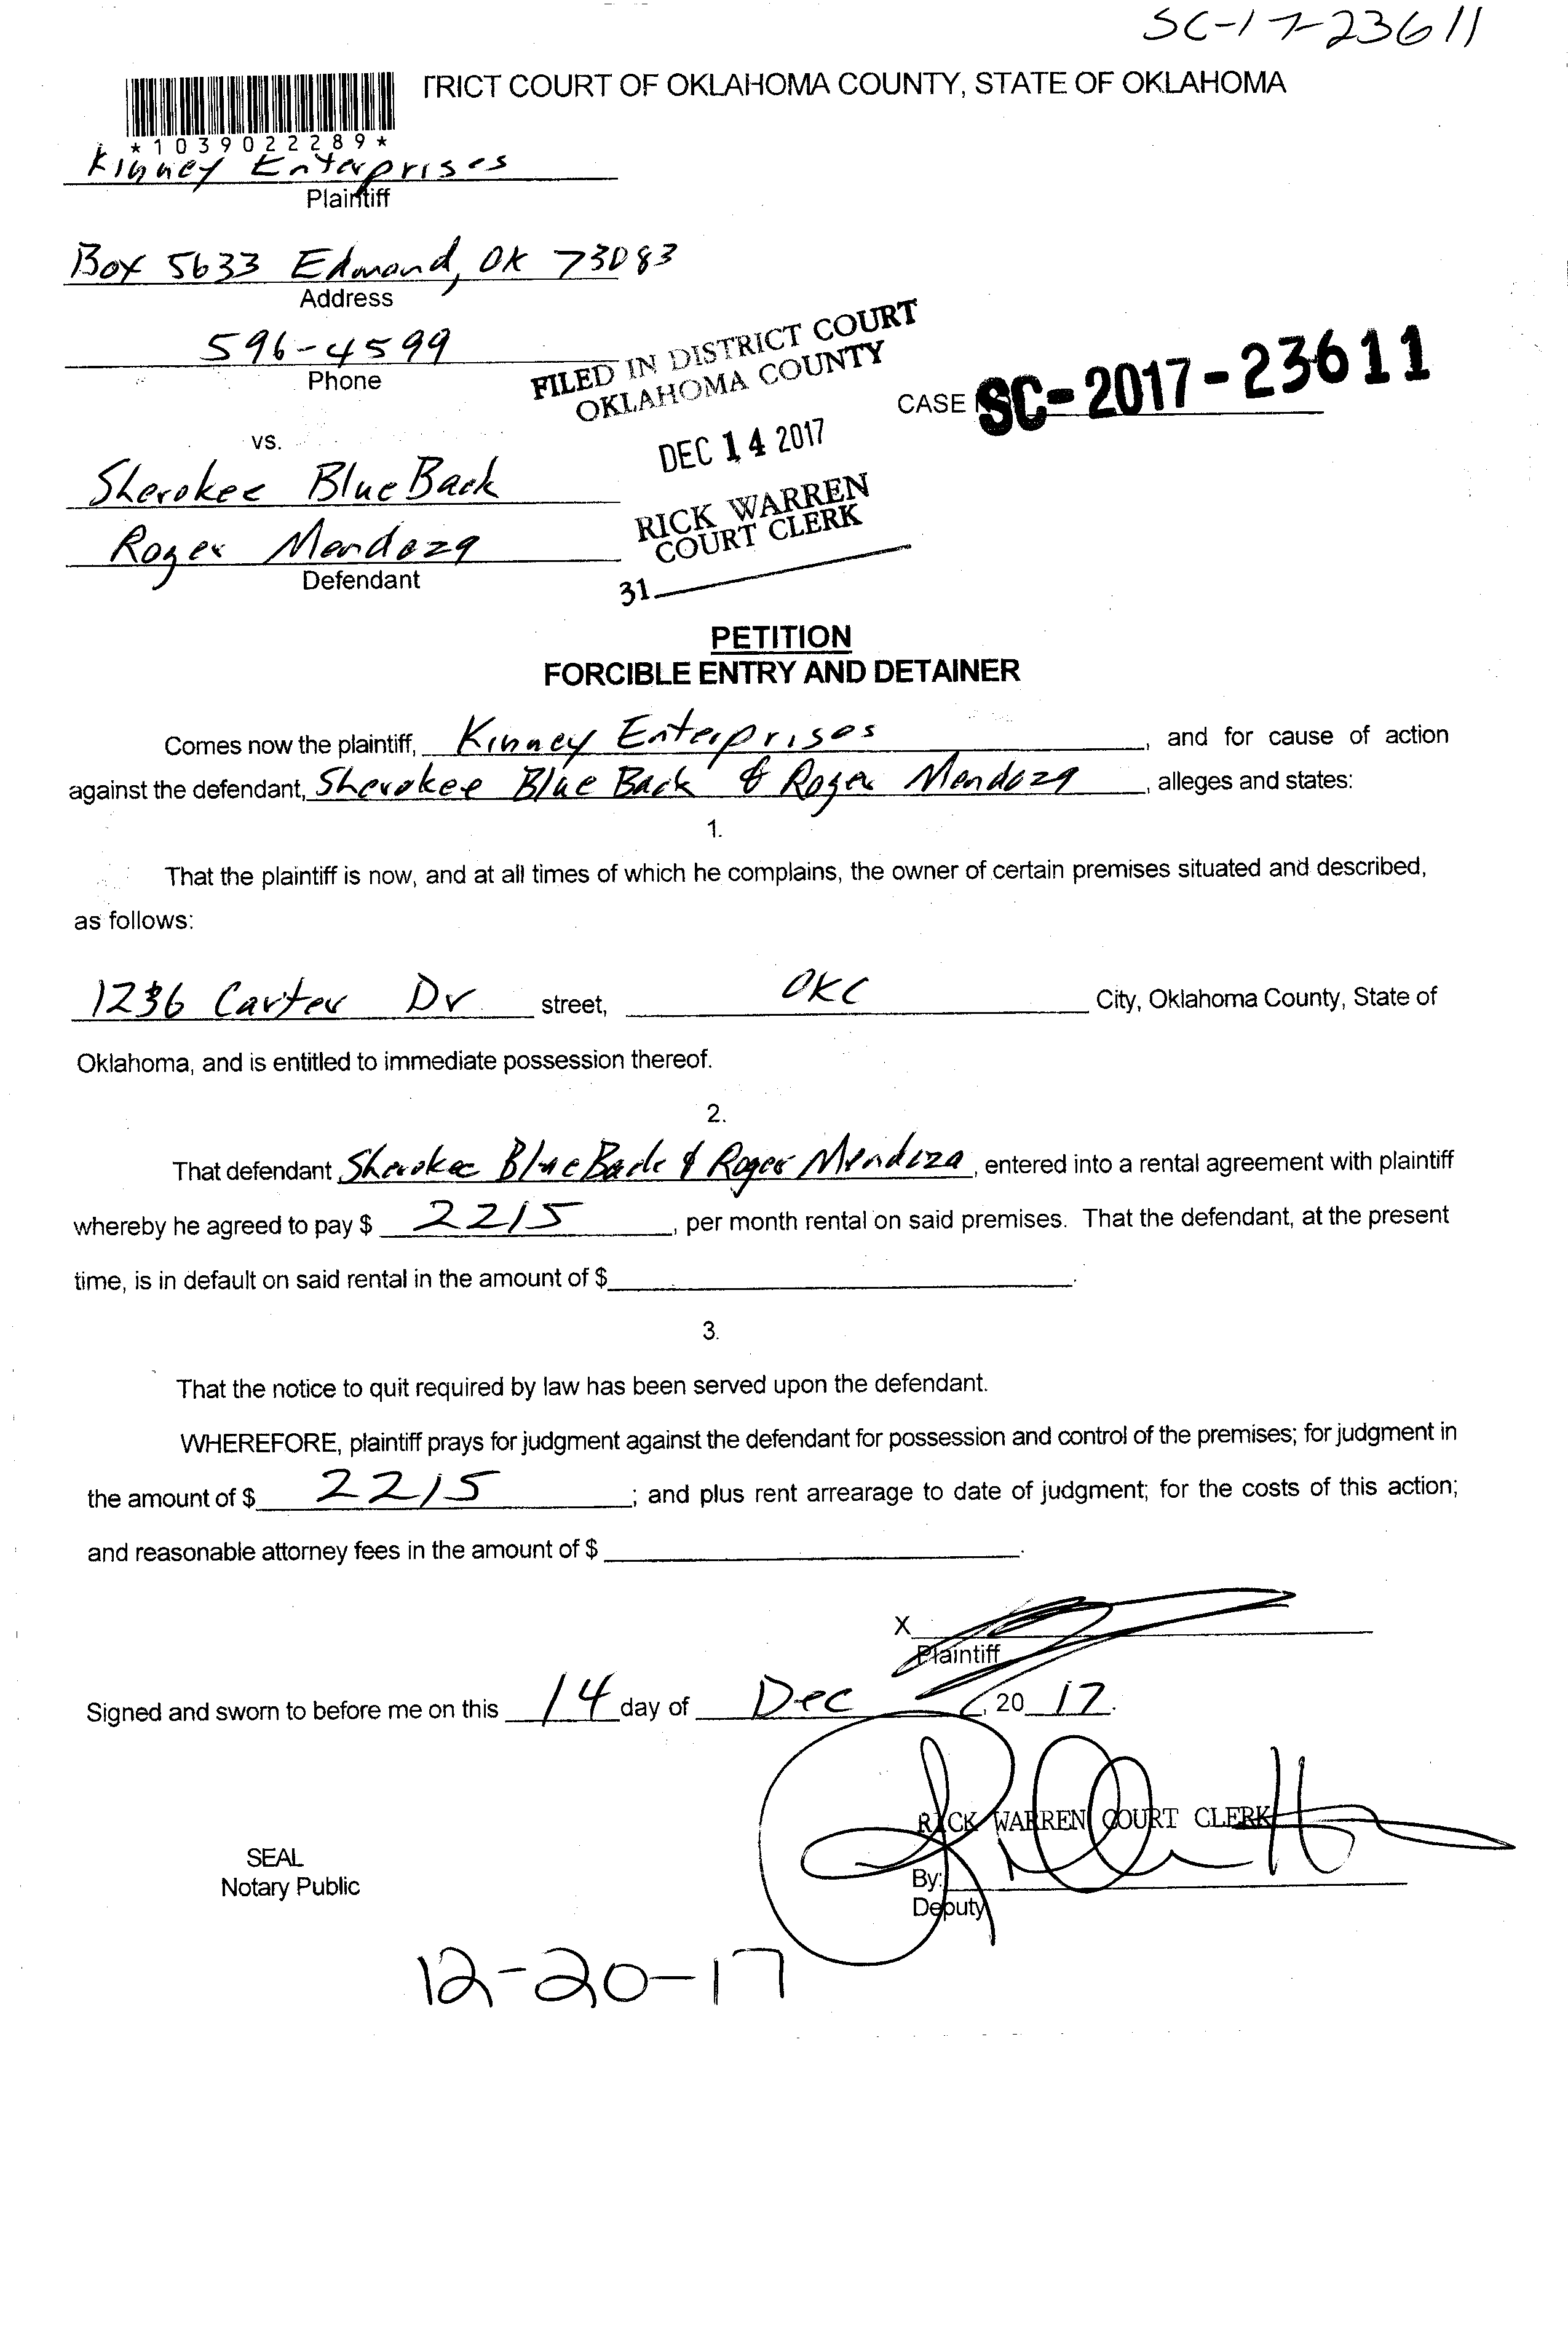 SC-17-23611
TRICT COURT OF OKLAHOMA COUNTY, STATE OF OKLAHOMA
*1039022289*
Kinney Enterprises
Plaintiff
Box 5633 Edmond, OK 73083
Address
596-4599
Phone
FILED IN DISTRICT COURT
OKLAHOMA COUNTY
CASE SC-2017-23611
DEC 14 2017
vs.
RICK WARREN
COURT CLERK
31
Sherokee Blue Back
Roger Mendoza
Defendant
PETITION
FORCIBLE ENTRY AND DETAINER
Comes now the plaintiff, Kinney Enterprises, and for cause of action
against the defendant, Sherokee Blue Back & Roger Mendoza, alleges and states:
1.
That the plaintiff is now, and at all times of which he complains, the owner of certain premises situated and described,
as follows:
1236 Carter Dr street, OKC City, Oklahoma County, State of
Oklahoma, and is entitled to immediate possession thereof.
2.
That defendant Sherokee Blue Back & Roger Mendoza, entered into a rental agreement with plaintiff
whereby he agreed to pay $ 2215, per month rental on said premises. That the defendant, at the present
time, is in default on said rental in the amount of $.
3.
That the notice to quit required by law has been served upon the defendant.
WHEREFORE, plaintiff prays for judgment against the defendant for possession and control of the premises; for judgment in
the amount of $ 2215; and plus rent arrearage to date of judgment; for the costs of this action;
and reasonable attorney fees in the amount of $.
X
Plaintiff
Signed and sworn to before me on this 14 day of Dec, 20 17.
RICK WARREN COURT CLERK
SEAL
Notary Public
By:
Deputy
12-20-17